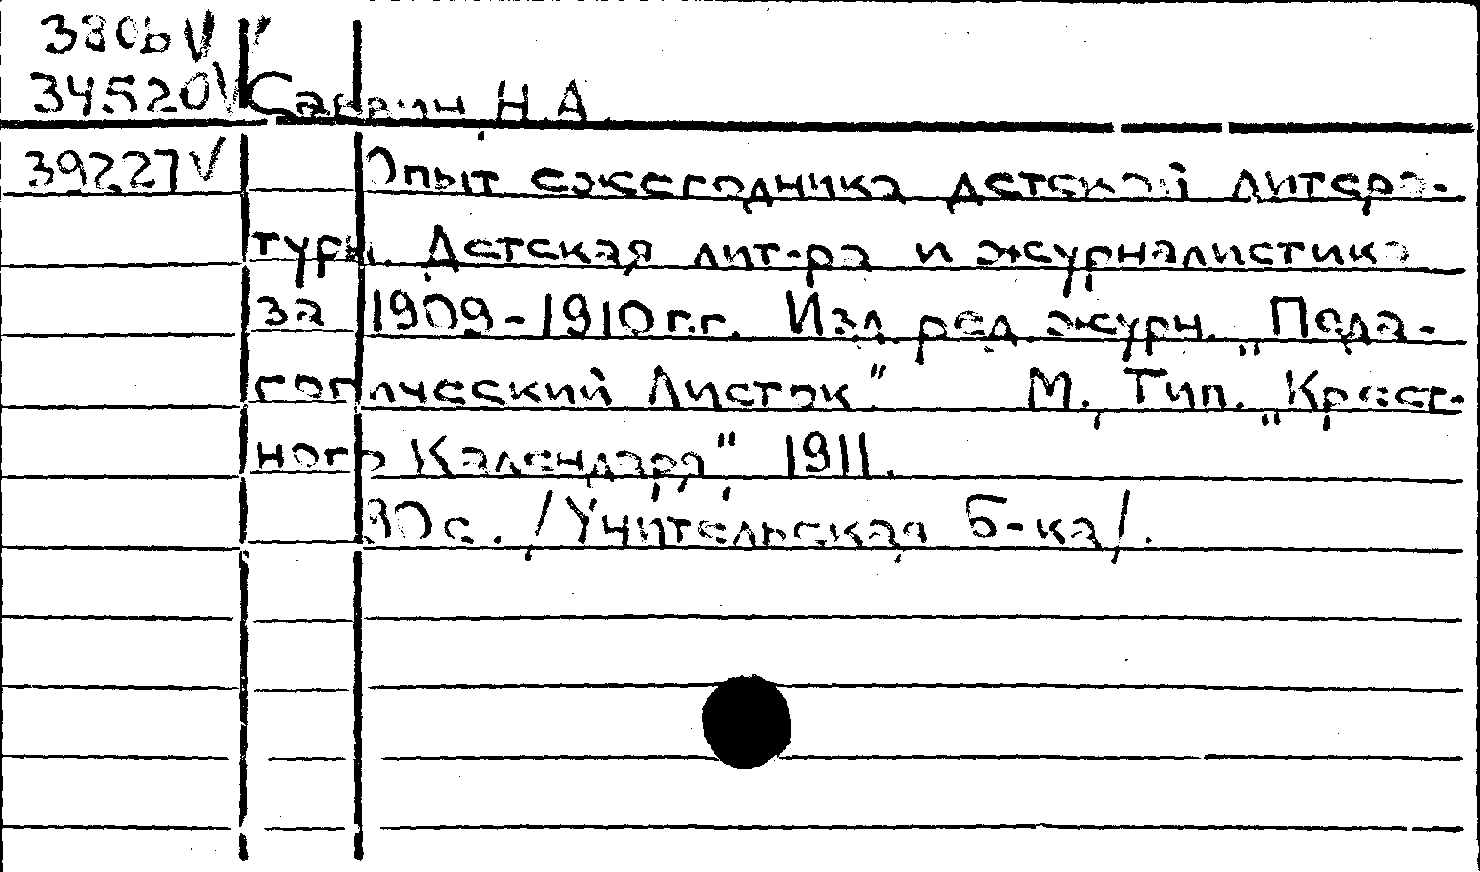 3806 V
34520 V Саввин Н.А.
39227 V Опыт ежегодника детской литера-
туры. Детская лит-ра и журналистика
за 1909-1910 г.г. Изд. ред. журн. „Педа-
гогический Листок" М., Тип. „Крест-
ного Календаря", 1911.
80 с. /Учительская б-ка/.